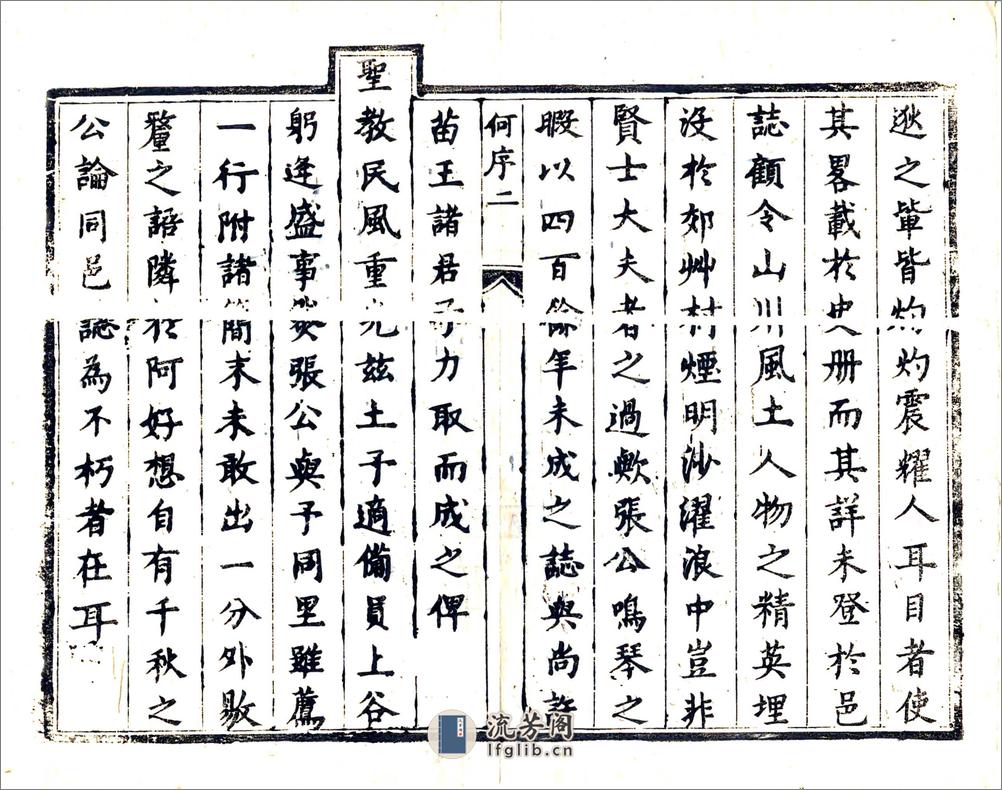 逖之軰皆灼灼震耀人耳目者使
其畧載於史册而其詳未登於邑
誌顧令山川風土人物之精英埋
没於郊艸村煙明沙濯浪中豈非
賢士大夫者之過歟張公鳴琴之
暇以四百餘年未成之誌與尚
何序二
苗王諸君子力取而成之俾
聖教民風重光兹土予適備員上谷
躬逢盛事矣張公與予同里雖薦
一行附諸簡末未敢出一分外
之語隣於阿好想自有千秋之
公論同邑誌為不朽者在耳
流芳阁
lfglib.cn